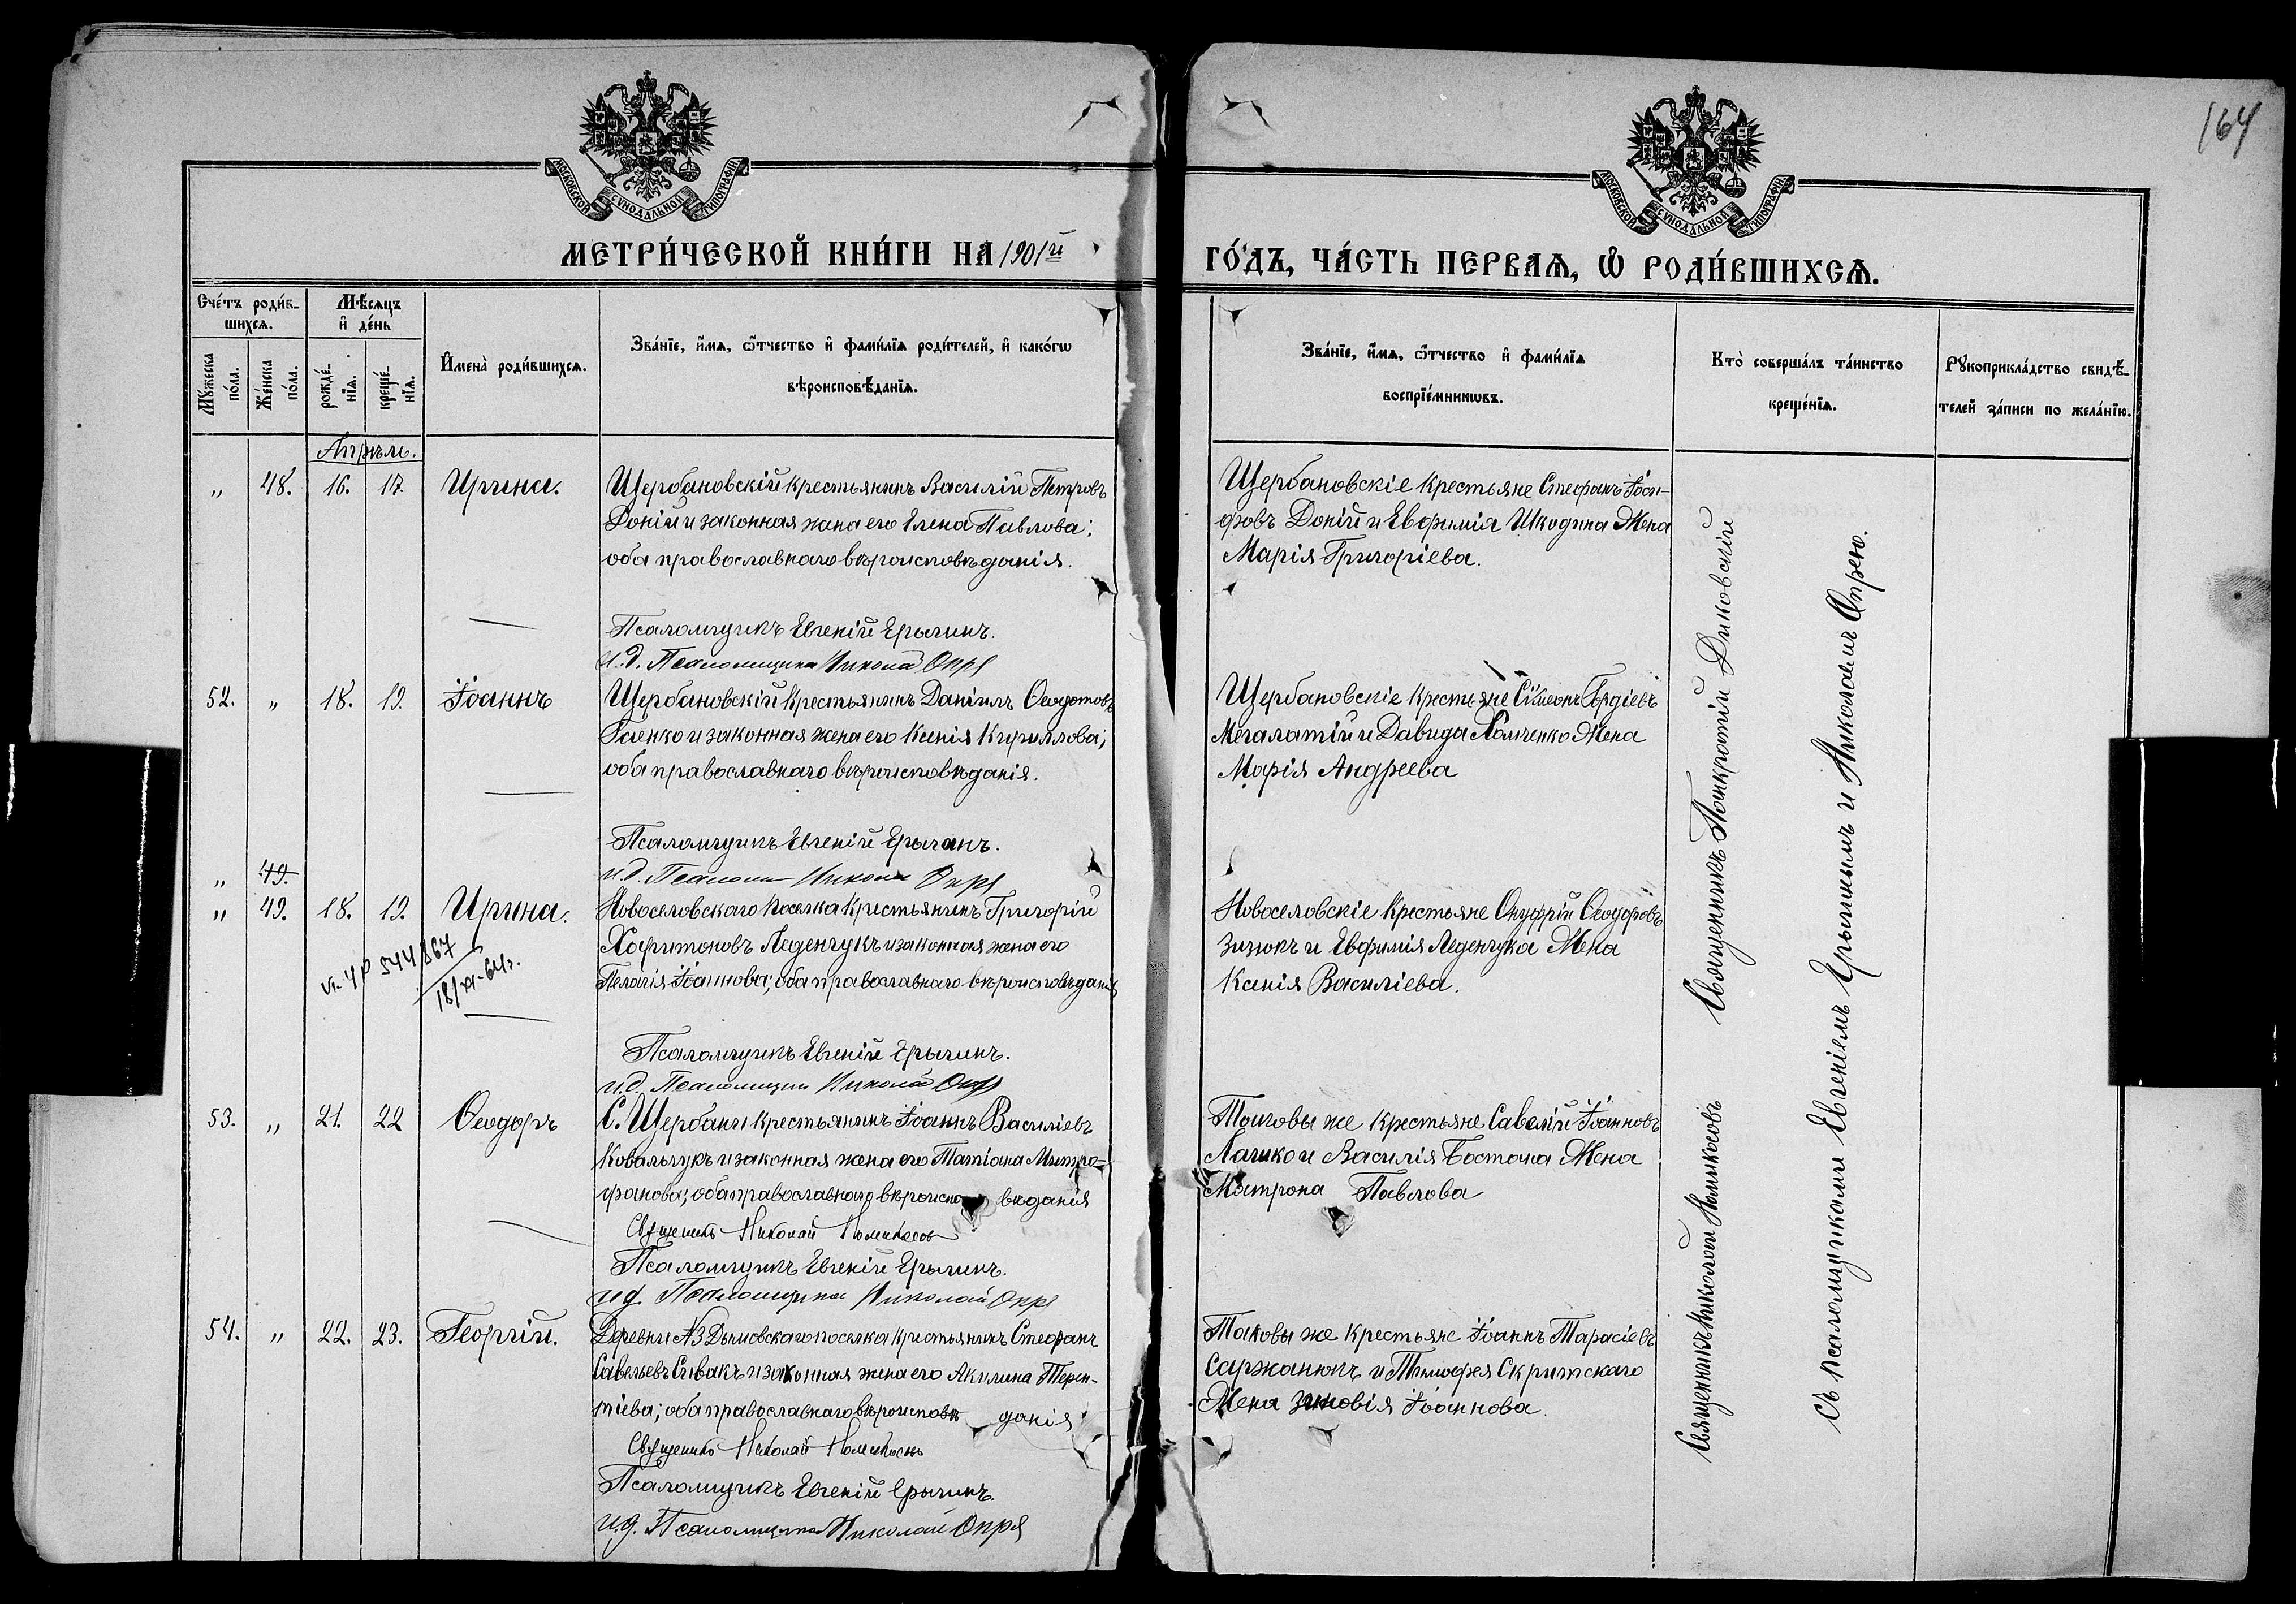 164
МОСКОВСКОЙ СѴНОДАЛЬНОЙ ТИПОГРАФІИ
МОСКОВСКОЙ СѴНОДАЛЬНОЙ ТИПОГРАФІИ
МЕТРИ́ЧЕСКОЙ КНИ́ГИ НА 1901й
ГО́ДЪ, ЧА́СТЬ ПЕРВАѦ, Ѡ РОДИ́ВШИХСѦ.
Сче́тъ роди́в-
шихсѧ.
Мꙋ́жеска
по́ла.
Же́нска
по́ла.
Мѣ́сѧцъ
и҆ де́нь
рожде́-
нїѧ.
креще́-
нїѧ.
И҆мена̀ роди́вшихсѧ.
Зва́нїе, и҆́мѧ, ѻ҆́тчество и҆ фами́лїѧ роди́телей, и҆ како́гѡ
вѣроисповѣ́данїѧ.
Зва́нїе, и҆́мѧ, ѻ҆́тчество и҆ фами́лїѧ
воспрїе́мникѡвъ.
Кто̀ соверша́лъ та́инство
креще́нїѧ.
Рꙋкоприкла́дство свидѣ́-
телей за́писи по жела́нїю.
Апрѣль.
„ 48. 16. 17. Ирина.
Щербановскій крестьянинъ Василій Петровъ
Доній и законная жена его Елена Павлова;
оба православнаго вѣроисповѣданія.
Псаломщикъ Евгеній Ерыгинъ.
и.д. Псаломщика Николай Опря
Щербановскіе крестьяне Стефанъ Іоси-
фовъ Доній и Евфимія Шкодина Жена
Марія Григоріева.
52. „ 18. 19. Іоаннъ
Щербановскій крестьянинъ Даніилъ Ѳеодотовъ
Гаенко и законная жена его Ксенія Кириллова;
оба православнаго вѣроисповѣданія.
Псаломщикъ Евгеній Ерыгинъ.
и.д. Псалом Николай Опря
Щербановскіе крестьяне Сѷмеонъ Гордіевъ
Мегалатій и Давида Хомченко Жена
Марія Андреева
„ 49.
„ 49. 18. 19. Ирина.
544867
18/XI-64г.
Новоселовскаго поселка крестьянинъ Григорій
Харитоновъ Леденчукъ и законная жена его
Пелагія Іоаннова; оба православнаго вѣроисповѣданія
Псаломщикъ Евгеній Ерыгинъ.
и.д. Псаломщика Николай Опря
Новоселовскіе крестьяне Онуфрій Ѳеодоровъ
Зизюкъ и Евфимія Леденчука Жена
Ксенія Василіева.
53. „ 21. 22 Ѳеодоръ
С. Щербаны крестьянинъ Іоаннъ Василіевъ
Ковальчукъ и законная жена его Татіана Митро-
фанова; оба православнаго вѣроиспо вѣданія
Священникъ Николай
Псаломщикъ Евгеній Ерыгинъ.
и.д. Псаломщика Николай Опря
Таковы же крестьяне Савелій Іоанновъ
Лашко и Василія Бостана Жена
Матрона Павлова
54. „ 22. 23. Георгій.
Деревни Дымовскаго поселка крестьянинъ Стефанъ
Савельевъ Сивакъ и законная жена его Акилина Терен-
тіева; оба православнаго вѣроисповѣ данія
Священникъ Николай
Псаломщикъ Евгеній Ерыгинъ.
и.д. Псаломщика Николай Опря
Таковы же крестьяне Іоаннъ Тарасіевъ
Саржанюкъ и Тимофея Скритскаго
Жена Зиновія Іоаннова.
Священникъ Панкратій Диковскій
Священникъ Николай
съ псаломщиками Евгеніемъ Ерыгинымъ и Николаемъ Опрею.